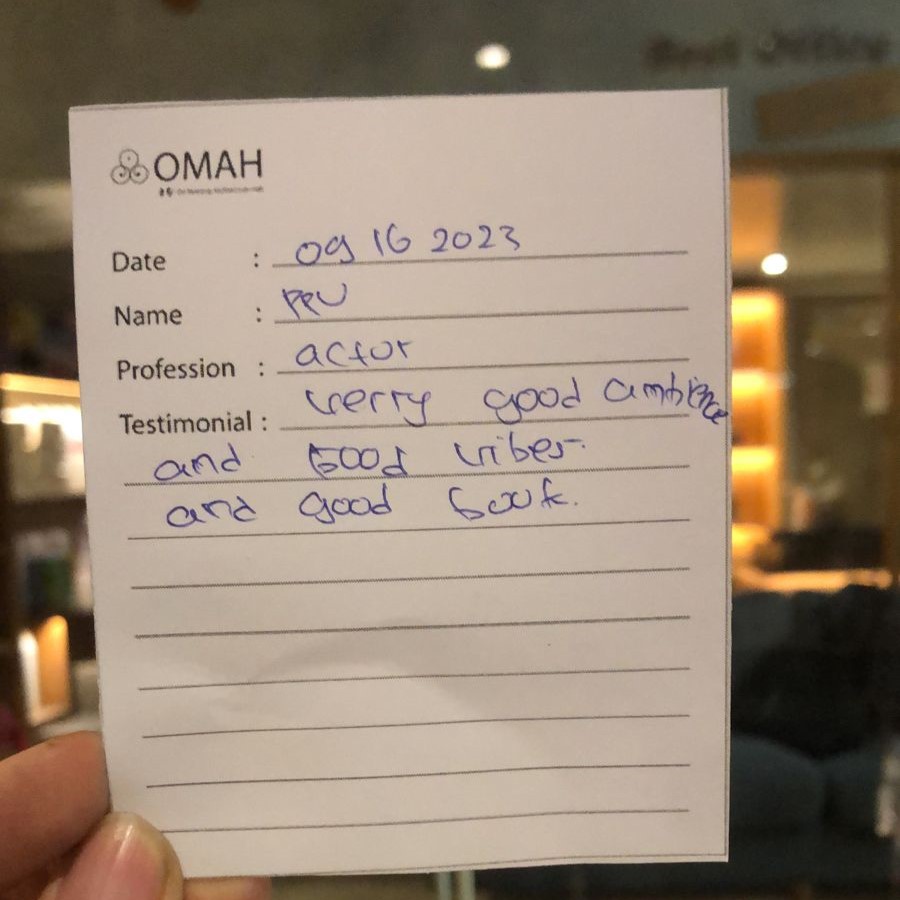 OMAH
Date : 09 16 2023
Name : PPU
Profession : actor
Testimonial : verry good ambience
and Good vibes.
and good book.